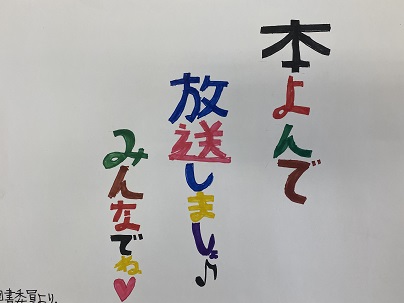 本よんで
放送しましょ♪
みんなでね♥
書委員より